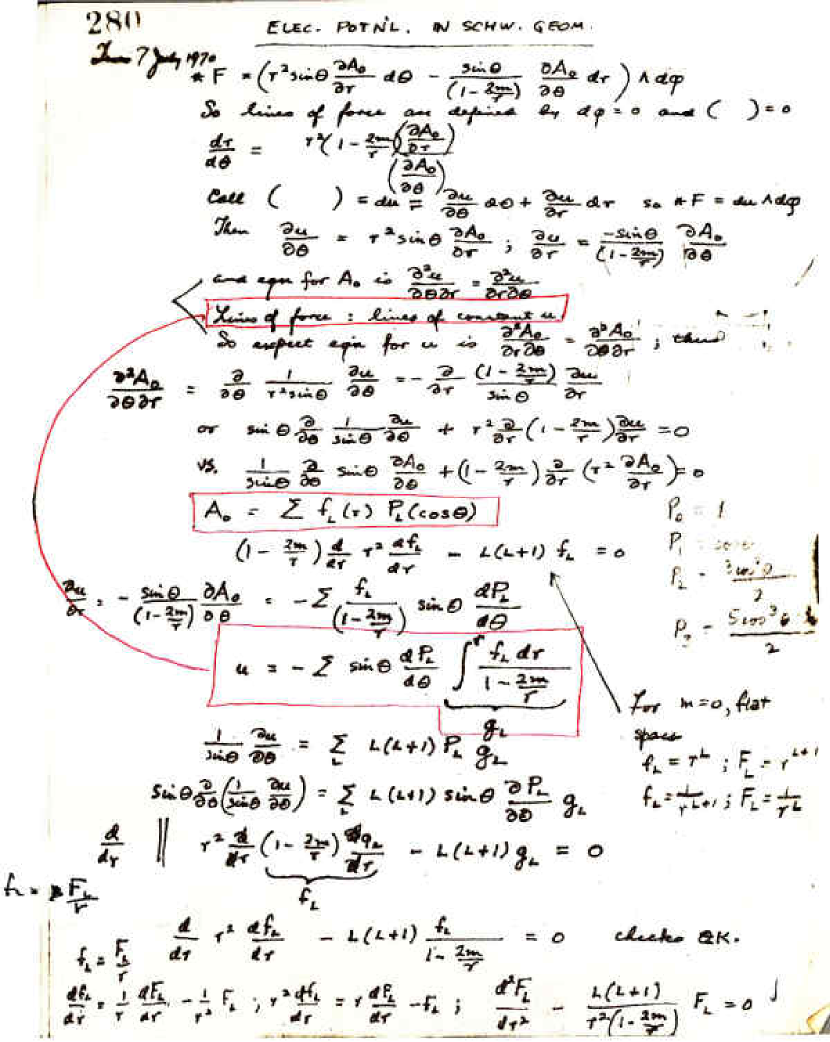 280
ELEC. POTN'L. IN SCHW. GEOM.
Tues 7 July 1970
*F = (r² sinθ ∂A₀/∂r dθ − sinθ/(1−2m/r) ∂A₀/∂θ dr) ∧ dφ
So lines of force are defined by dφ=0 and ( )=0
dr/dθ = r²(1−2m/r)(∂A₀/∂r)/(∂A₀/∂θ)
Call ( ) = du = ∂u/∂θ dθ + ∂u/∂r dr so *F = du∧dφ
Then ∂u/∂θ = r² sinθ ∂A₀/∂r ; ∂u/∂r = −sinθ/(1−2m/r) ∂A₀/∂θ
and eqn for A₀ is ∂²u/∂θ∂r = ∂²u/∂r∂θ
Lines of force : lines of constant u
So expect eqn for u is ∂²A₀/∂r∂θ = ∂²A₀/∂θ∂r ; thus
∂²A₀/∂θ∂r = ∂/∂θ 1/(r² sinθ) ∂u/∂θ = −∂/∂r (1−2m/r)/sinθ ∂u/∂r
or sinθ ∂/∂θ 1/sinθ ∂u/∂θ + r² ∂/∂r (1−2m/r) ∂u/∂r = 0
vs. 1/sinθ ∂/∂θ sinθ ∂A₀/∂θ + (1−2m/r) ∂/∂r (r² ∂A₀/∂r) = 0
A₀ = Σ f_L(r) P_L(cosθ)
P₀ = 1
(1−2m/r) d/dr r² df_L/dr − L(L+1) f_L = 0
∂u/∂r = −sinθ/(1−2m/r) ∂A₀/∂θ = −Σ f_L/(1−2m/r) sinθ dP_L/dθ
u = −Σ sinθ dP_L/dθ ∫^r f_L dr/(1−2m/r)
g_L
For m=0, flat
space
f_L = r^L ; F_L = r^(L+1)
f_L = 1/r^(L+1) ; F_L = 1/r^L
1/sinθ ∂u/∂θ = Σ_L L(L+1) P_L g_L
sinθ ∂/∂θ (1/sinθ ∂u/∂θ) = Σ_L L(L+1) sinθ ∂P_L/∂θ g_L
d/dr ‖ r² d/dr (1−2m/r) dg_L/dr − L(L+1) g_L = 0
f_L
f_L = F_L/r
d/dr r² df_L/dr − L(L+1) f_L/(1−2m/r) = 0 checks OK.
f_L = F_L/r
df_L/dr = 1/r dF_L/dr − 1/r² F_L ; r² df_L/dr = r dF_L/dr − F_L ; d²F_L/dr² − L(L+1)/(r²(1−2m/r)) F_L = 0